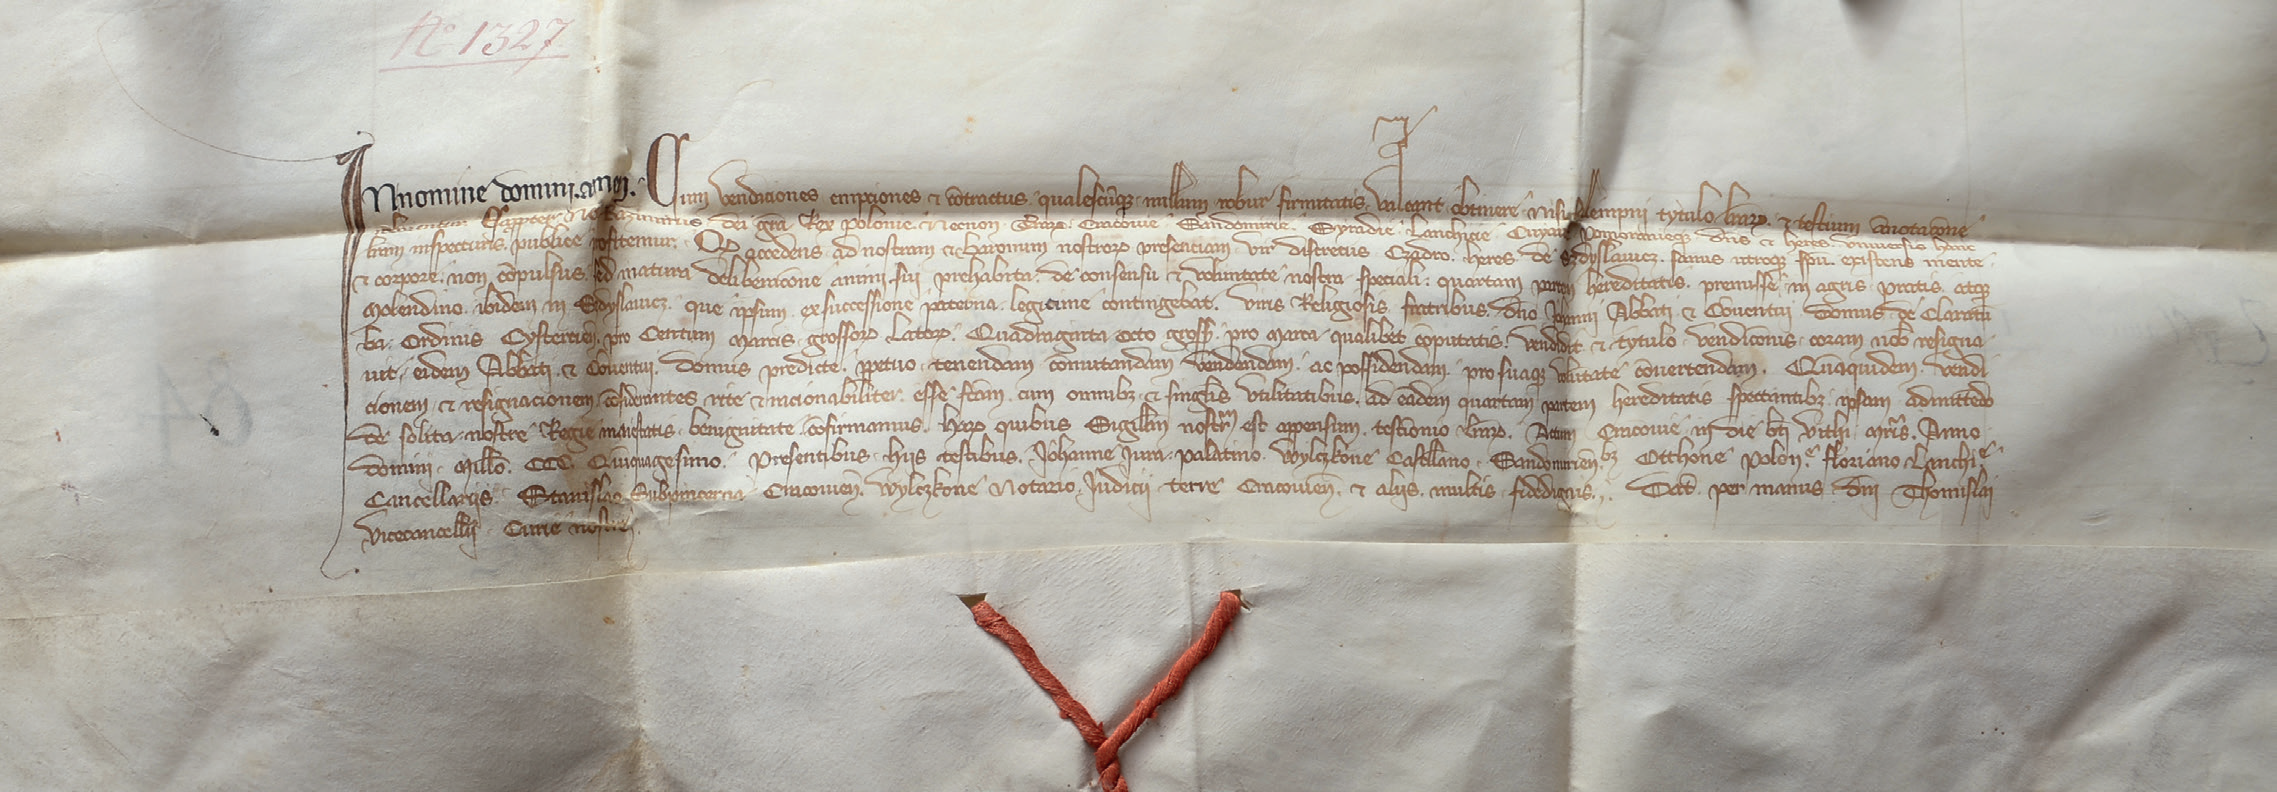 No 1327
In nomine domini. amen. Cum vendiciones empciones et contractus qualescunque nullum robur firmitatis valeant obtinere nisi sollempni tytulo lrarum. et testium annotacione
Kazimirus dei gra Rex Polonie. Necnon Terrarum. Cracovie Sandomirie. Syradie. Lanchicie Cuyavie Pomoranieque. Dns et heres. universis hanc
litteram inspecturis. publice profitemur. Quod accedens ad nostram et Baronum nostrorum presentiam. vir discretus. Czadro. heres de Sdyslavicz. sanus utroque existens mente.
et corpore. non compulsus. sed matura deliberacione animi sui prehabita. de consensu et voluntate nostra speciali. quartam partem hereditatis. premisse in agris pratis. atque
Molendino. ibidem in Sdyslavicz. que ipsum. ex successione paterna. legitime contingebat. viris Religiosis. fratribus. dno Johanni Abbati. et Conventui domus de Claratu
ba. Ordinis Cystercien. pro Centum Marcis. grossorum Latorum. Quadraginta Octo gross. pro Marca. qualibet computatis. vendidit. et tytulo vendiconis. coram nob resigna
vit. eidem Abbati. et Conventui. domus predicte. ppetuo. tenendam comutandam vendendam. ac possidendam. pro suaque volutate convertendam. Quaquidem vendi
cionem. et resignacionem considerantes rite et racionabiliter. esse fcam. cum omnibus. et singlis utilitatibus. ad eadem quartam partem hereditatis spectantibus. ipsam admittendo
de solita. nostre Regie maiestatis. benignitate. confirmamus. Harum quibus Sigillum nostrum est appensum. testimonio lrarum. Actum Cracovie in die bti Vithi. Mris. Anno.
domini. Millo. CCC. Quinquagesimo. Presentibus. hiis testibus. Johanne Jura. Palatino. Wylczkone Castellano. Sandomirien. Otthone Polon. Floriano. Lanchi
Cancellariis. Stanislao Subpincerna Cracovien. Wylczkone Notario. Judicii terre Cracovien. et aliis. multis fidedignis. Dat. per manus. dni Thomislai
Vicecancellii. Curie nostre.